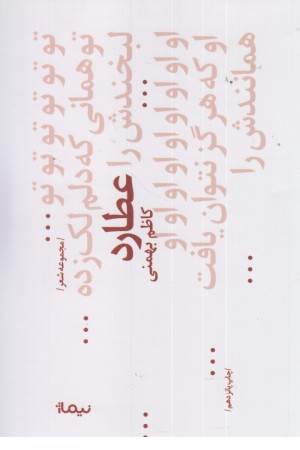 تو تو تو تو تو تو ...
تو همانی که دلم لک زده ...
لبخندش را ...
عطارد
کاظم بهمنی
/مجموعه شعر/
... او او او او او او او او ...
او که هرگز نتوان یافت ...
همانندش را ...
/چاپ پانزدهم/
نیماژ